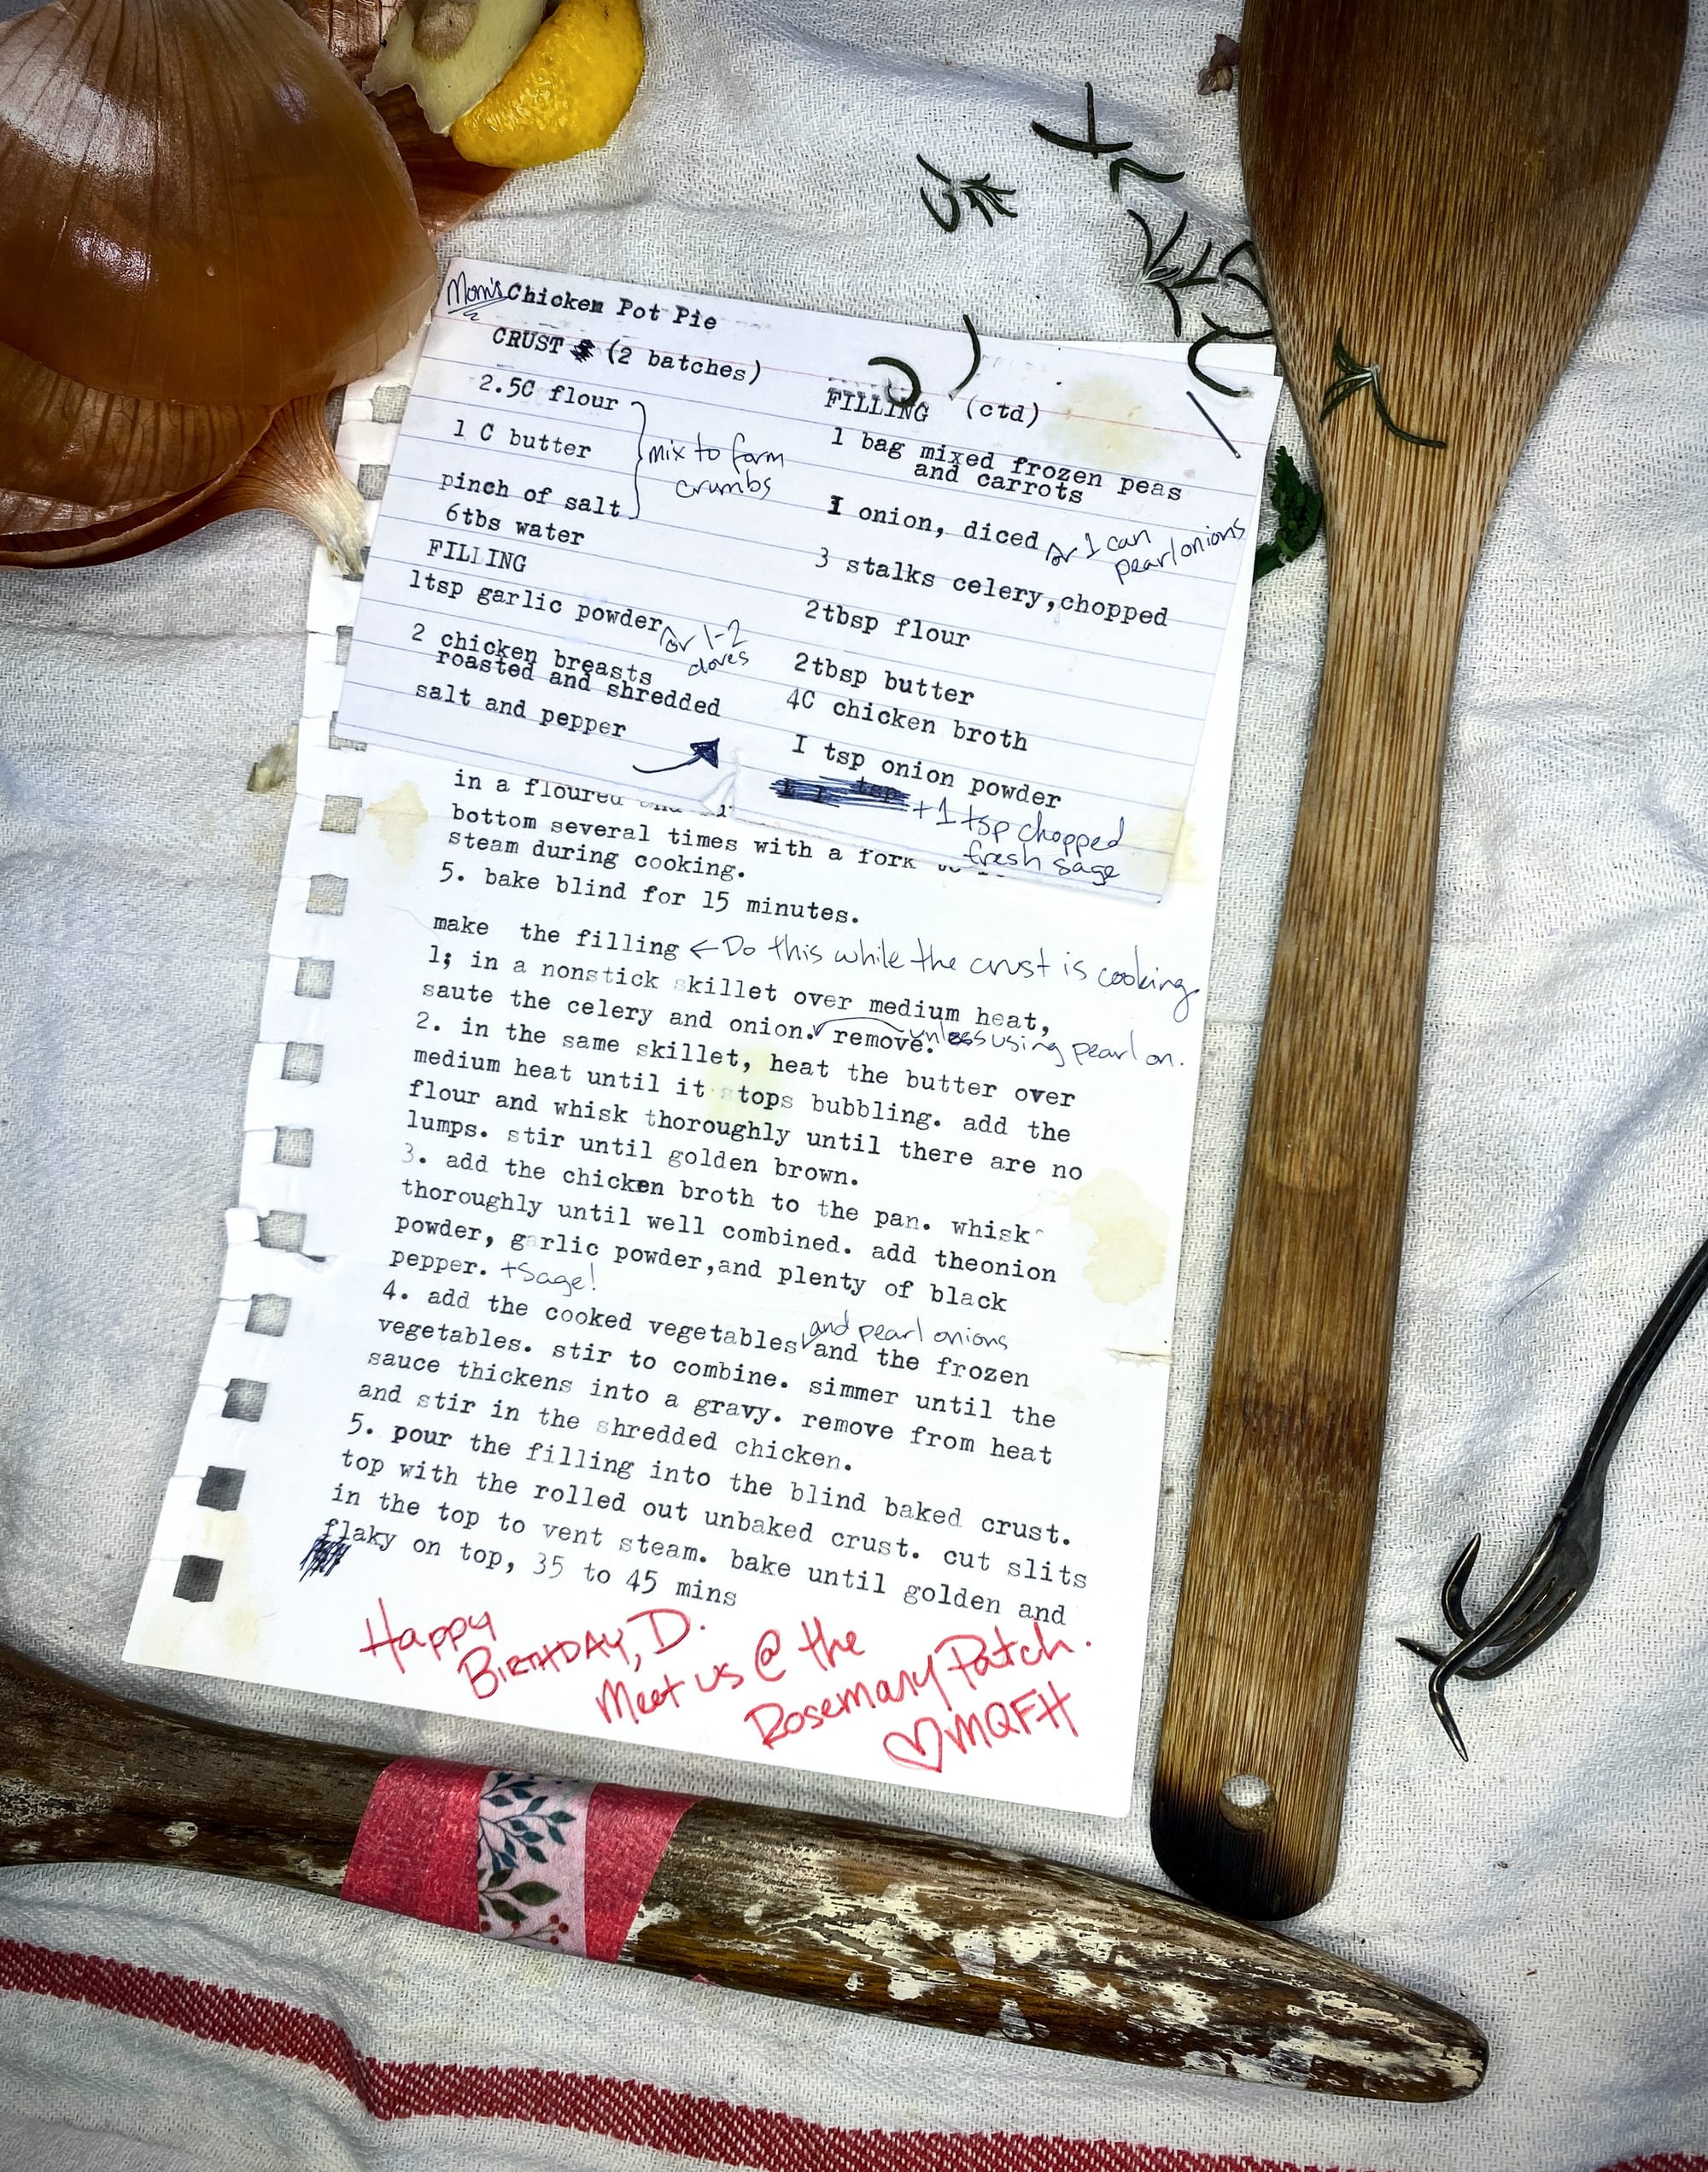 Mom's Chicken Pot Pie
CRUST (2 batches)
2.5C flour
1 C butter
pinch of salt
mix to form
crumbs
6tbs water
FILLING
1tsp garlic powder
or 1-2
cloves
2 chicken breasts
roasted and shredded
salt and pepper
FILLING (ctd)
1 bag mixed frozen peas
and carrots
I onion, diced
or 1 can
pearl onions
3 stalks celery,chopped
2tbsp flour
2tbsp butter
4C chicken broth
I tsp onion powder
+1 tsp chopped
fresh sage
in a floured
bottom several times with a fork
steam during cooking.
5. bake blind for 15 minutes.
make the filling ← Do this while the crust is cooking
1; in a nonstick skillet over medium heat,
saute the celery and onion. remove. unless using pearl on.
2. in the same skillet, heat the butter over
medium heat until it stops bubbling. add the
flour and whisk thoroughly until there are no
lumps. stir until golden brown.
3. add the chicken broth to the pan. whisk
thoroughly until well combined. add theonion
powder, garlic powder,and plenty of black
pepper. +Sage!
and pearl onions
4. add the cooked vegetables and the frozen
vegetables. stir to combine. simmer until the
sauce thickens into a gravy. remove from heat
and stir in the shredded chicken.
5. pour the filling into the blind baked crust.
top with the rolled out unbaked crust. cut slits
in the top to vent steam. bake until golden and
flaky on top, 35 to 45 mins
Happy
BIRTHDAY, D.
Meet us @ the
Rosemary Patch.
♡MQFH